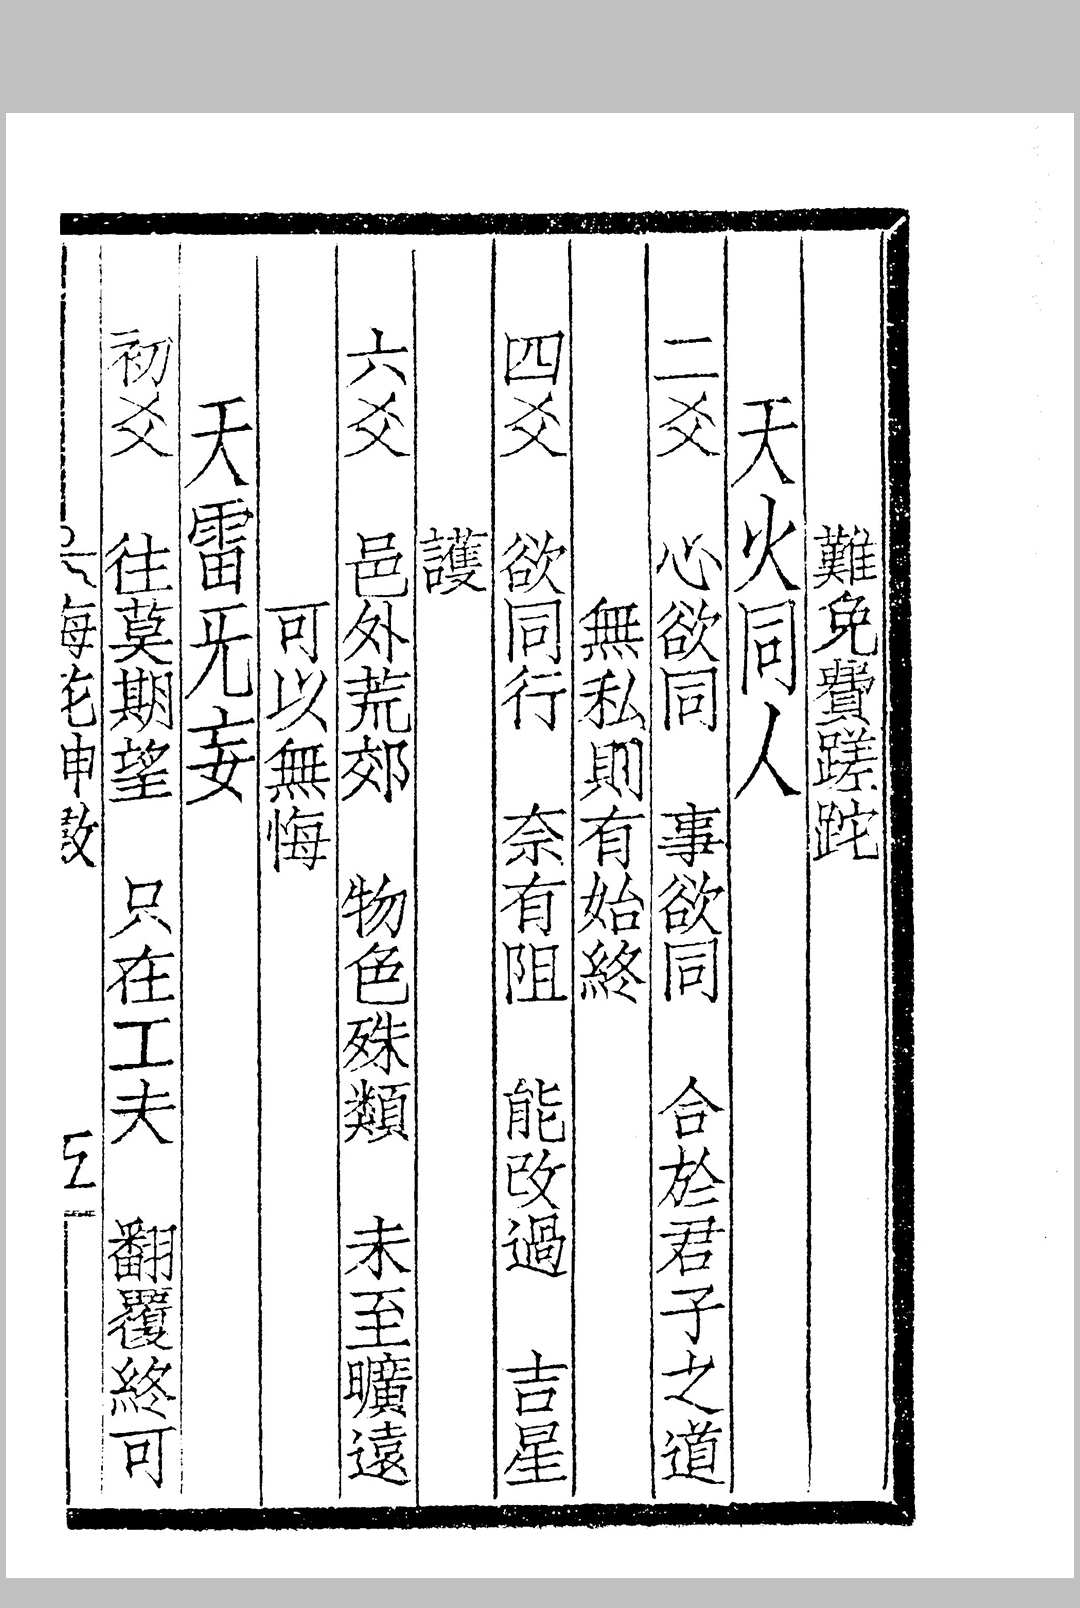 難免費蹉跎
天火同人
二爻　心欲同　事欲同　合於君子之道
無私則有始終
四爻　欲同行　奈有阻　能改過　吉星
護
六爻　邑外荒郊　物色殊類　未至曠遠
可以無悔
天雷旡妄
初爻　往莫期望　只在工夫　翻覆終可
梅花神數
五